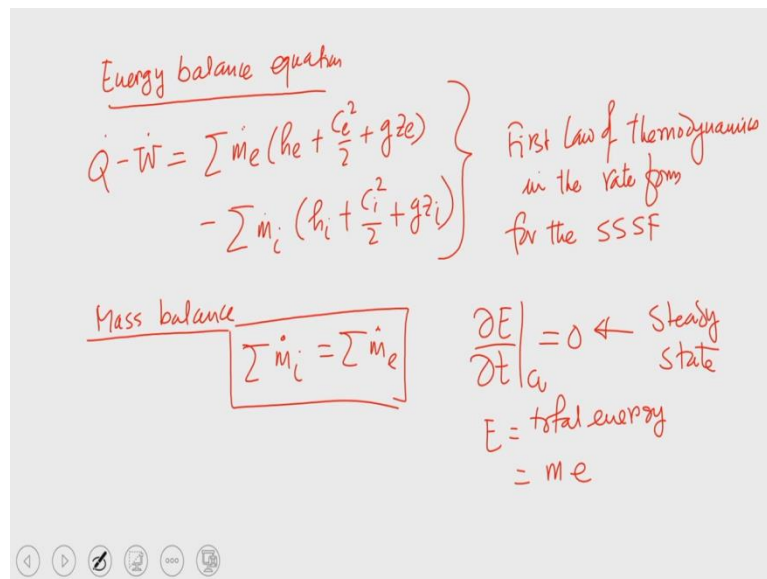 Energy balance equation
Q̇ - Ẇ = ∑ ṁe (he + Ce²/2 + gze)
- ∑ ṁi (hi + Ci²/2 + gzi)
First Law of thermodynamics
in the rate form
for the SSSF
Mass balance
∑ ṁi = ∑ ṁe
∂E/∂t|cv = 0 ← Steady
state
E = total energy
= me